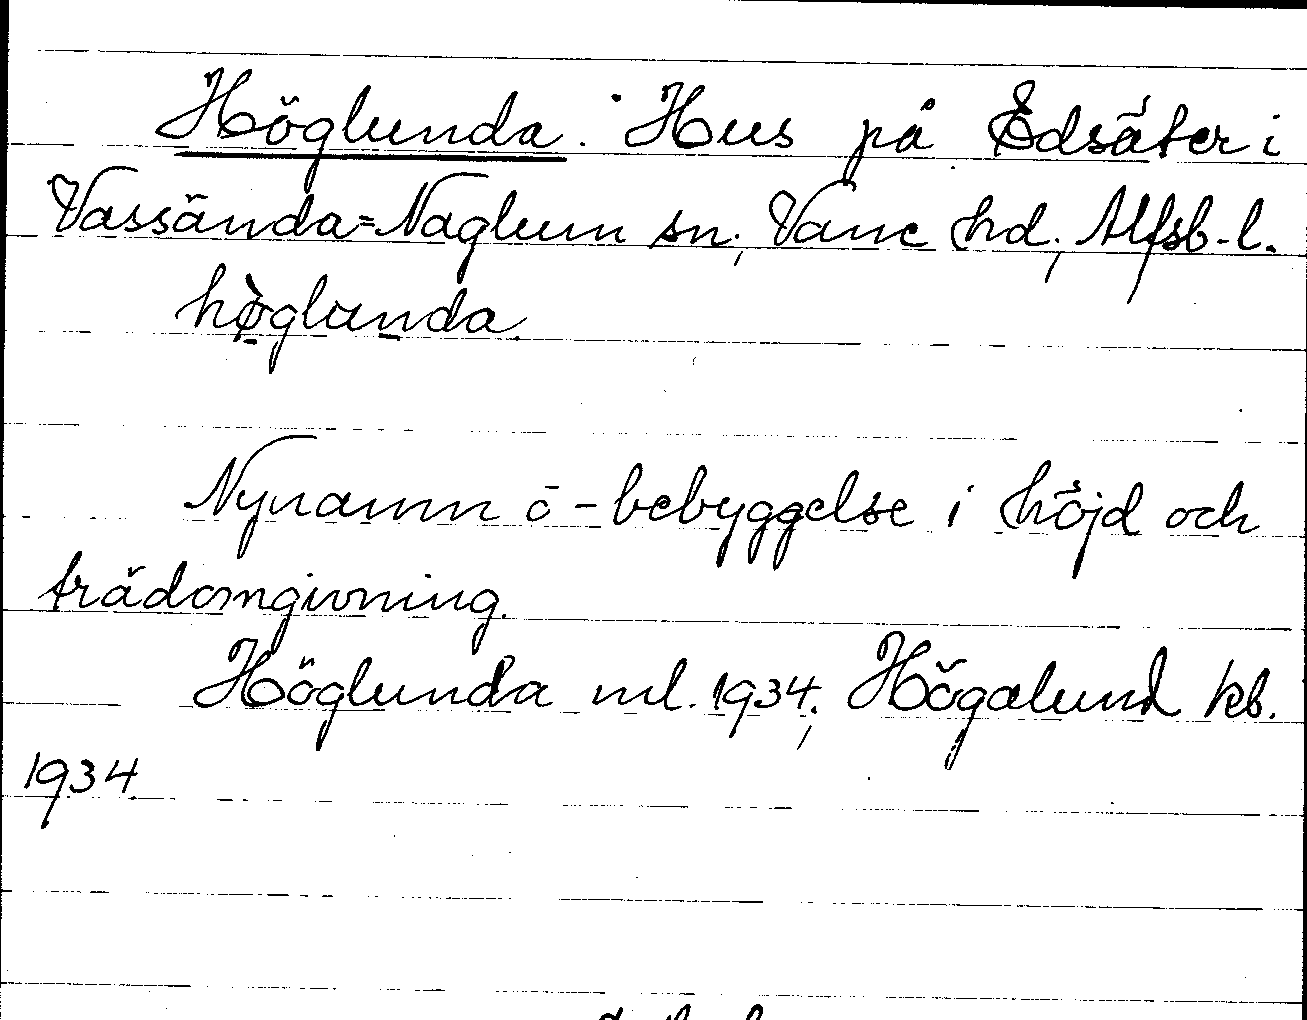 Höglunda. Hus på Edsäter i
Vassända=Naglum sn; Vane hd; Älfsb-l.
hø̀glunda.
Nynamn ō - bebyggelse i höjd och
trädomgivning.
Höglunda ml. 1934; Högalund kb.
1934.